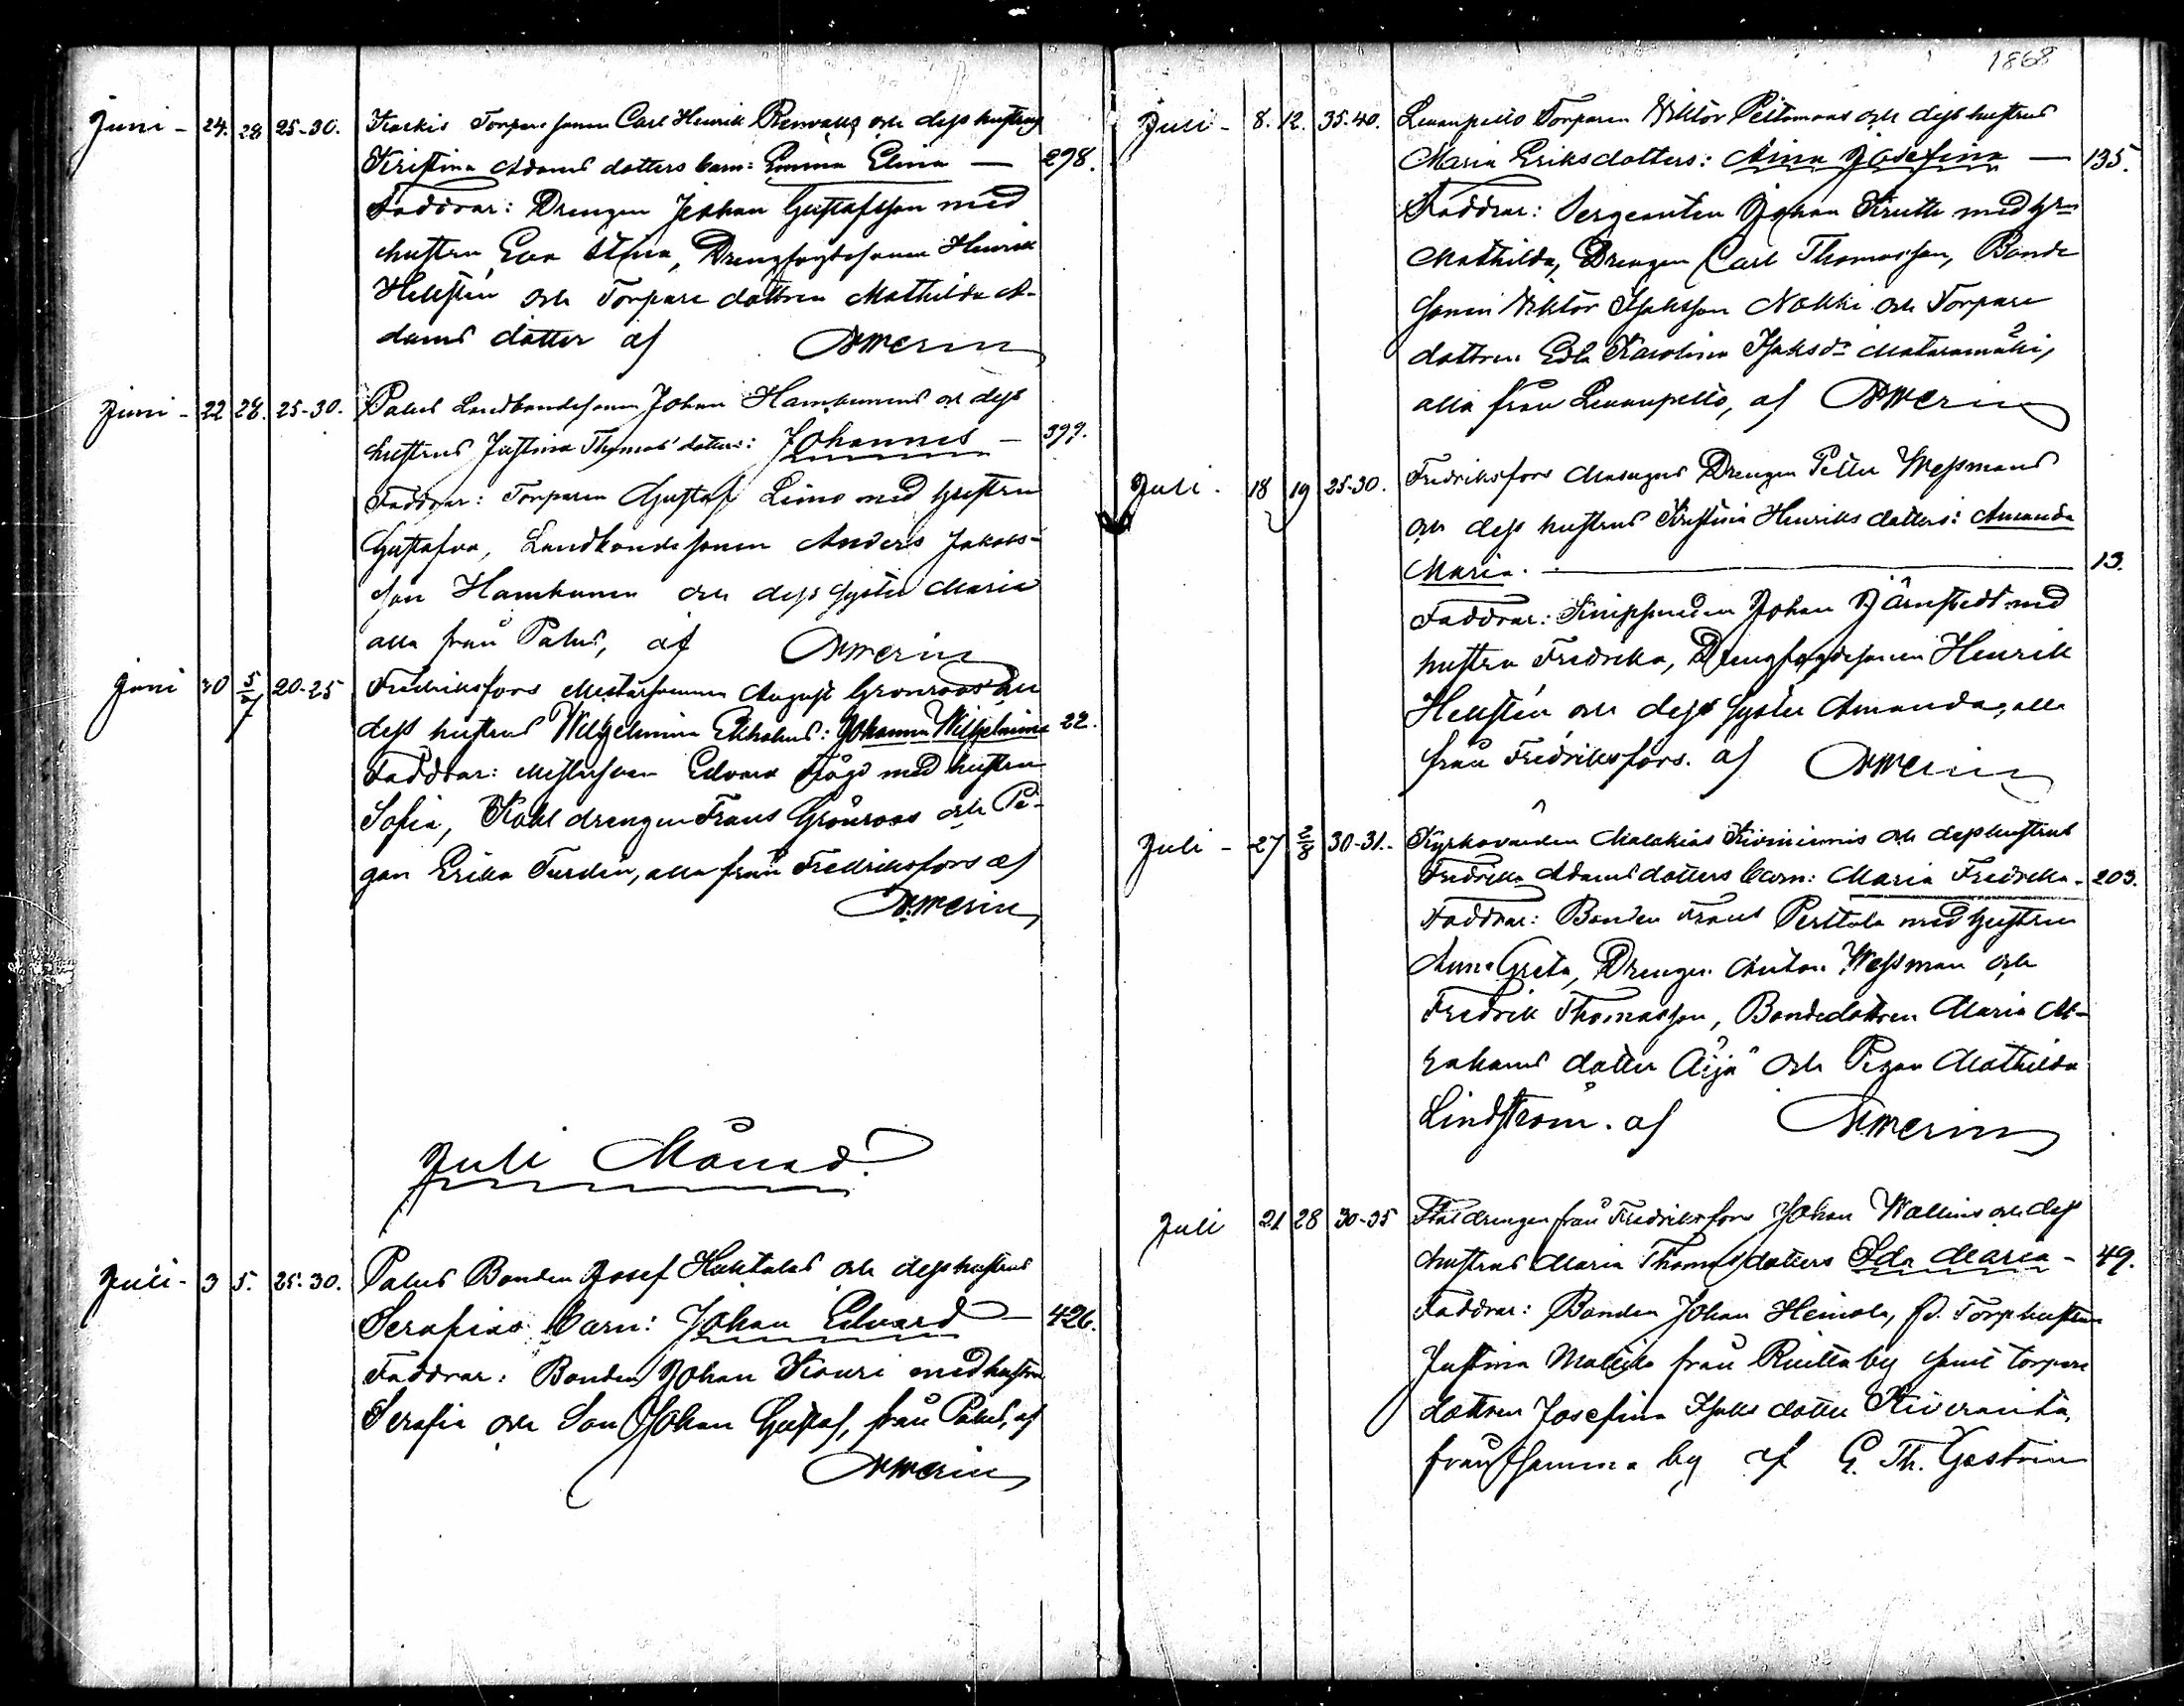 Juni - 24. 28 25-30. Torpare sonen Carl Henrik Renvalls och dess hustrus
Kristina Adams dotters barn: Emma Elina — 298.
Faddrar: Drengen Johan Gustafsson med
hustru Eva Stina, Drengfogdesonen Henrik
Hellstén och Torpare dottren Mathilda A-
dams dotter af
Juni - 22 28. 25-30. Palus Landbondesonen Johan Hambunens och dess
hustrus Justina Thomas dotters: Johannes — 399.
Faddrar: Torparen Gustaf Leino med hustru
Gustafva, Landbondesonen Anders Jakobs-
son Hambunen och dess syster Maria
alla från Palus, af
Juni 30 5/7 20-25 Fredriksfors August Grönroos och
dess hustrus Wilhelmina Ekholms: Johanna Wilhelmina 22.
Faddrar: Edvard med hustru
Sofia, drengen Frans Grönroos och Pi-
gan Erika Turdin, alla från Fredriksfors af
Juli Månad.
Juli - 3 5. 25-30. Palus Bonden Josef Huhtalas och dess hustrus
Serafias barn: Johan Edvard — 426.
Faddrar: Bonden Johan Kouri med hustru
Serafia och Son Johan Gustaf, från Palus, af
1868
Juli - 8. 12. 35-40. Levanpelto Torparen Wiktor Peltomaas och dess hustrus
Maria Eriksdotters: Aina Josefina — 135.
Faddrar: Sergeanten Johan med hru
Mathilda, Drengen Carl Thomasson, Bonde
sonen Wiktor Isaksson Nokki och Torpare
dottren Edla Karolina Isaksdr
alla från Levanpelto, af
Juli - 18 19 25-30. Fredriksfors Masugns Drengen Petter Wessmans
och dess hustrus Kristina Henriks dotters: Amanda
Maria. — 13.
Faddrar: Knipsmeden Johan Järnstedt med
hustru Fredrika, Drengfogdesonen Henrik
Hellstén och dess syster Amanda, alla
från Fredriksfors. af
Juli - 27 2/8 30-31. Kyrkovärden Malakias Kiviniemis och dess hustrus
Fredrika Adamsdotters barn: Maria Fredrika - 203.
Faddrar: Bonden Frans Perttola med hustru
Anna Greta, Drengen Anton Wessman och
Fredrik Thomasson, Bondedottren Maria
dotter Äijä och Pigan Mathilda
Lindström. af
Juli 21 28 30-35 Stal drengen från Fredriksfors Johan Wallins och dess
hustrus Maria Thomas dotters Ida Maria - 49.
Faddrar: Bonden Johan Heinola, fd. Torp hustrun
Justina från by samt torpare
dottren Josefina Isaks dotter Kiviranta,
från samma by af G. Th. Gestrin